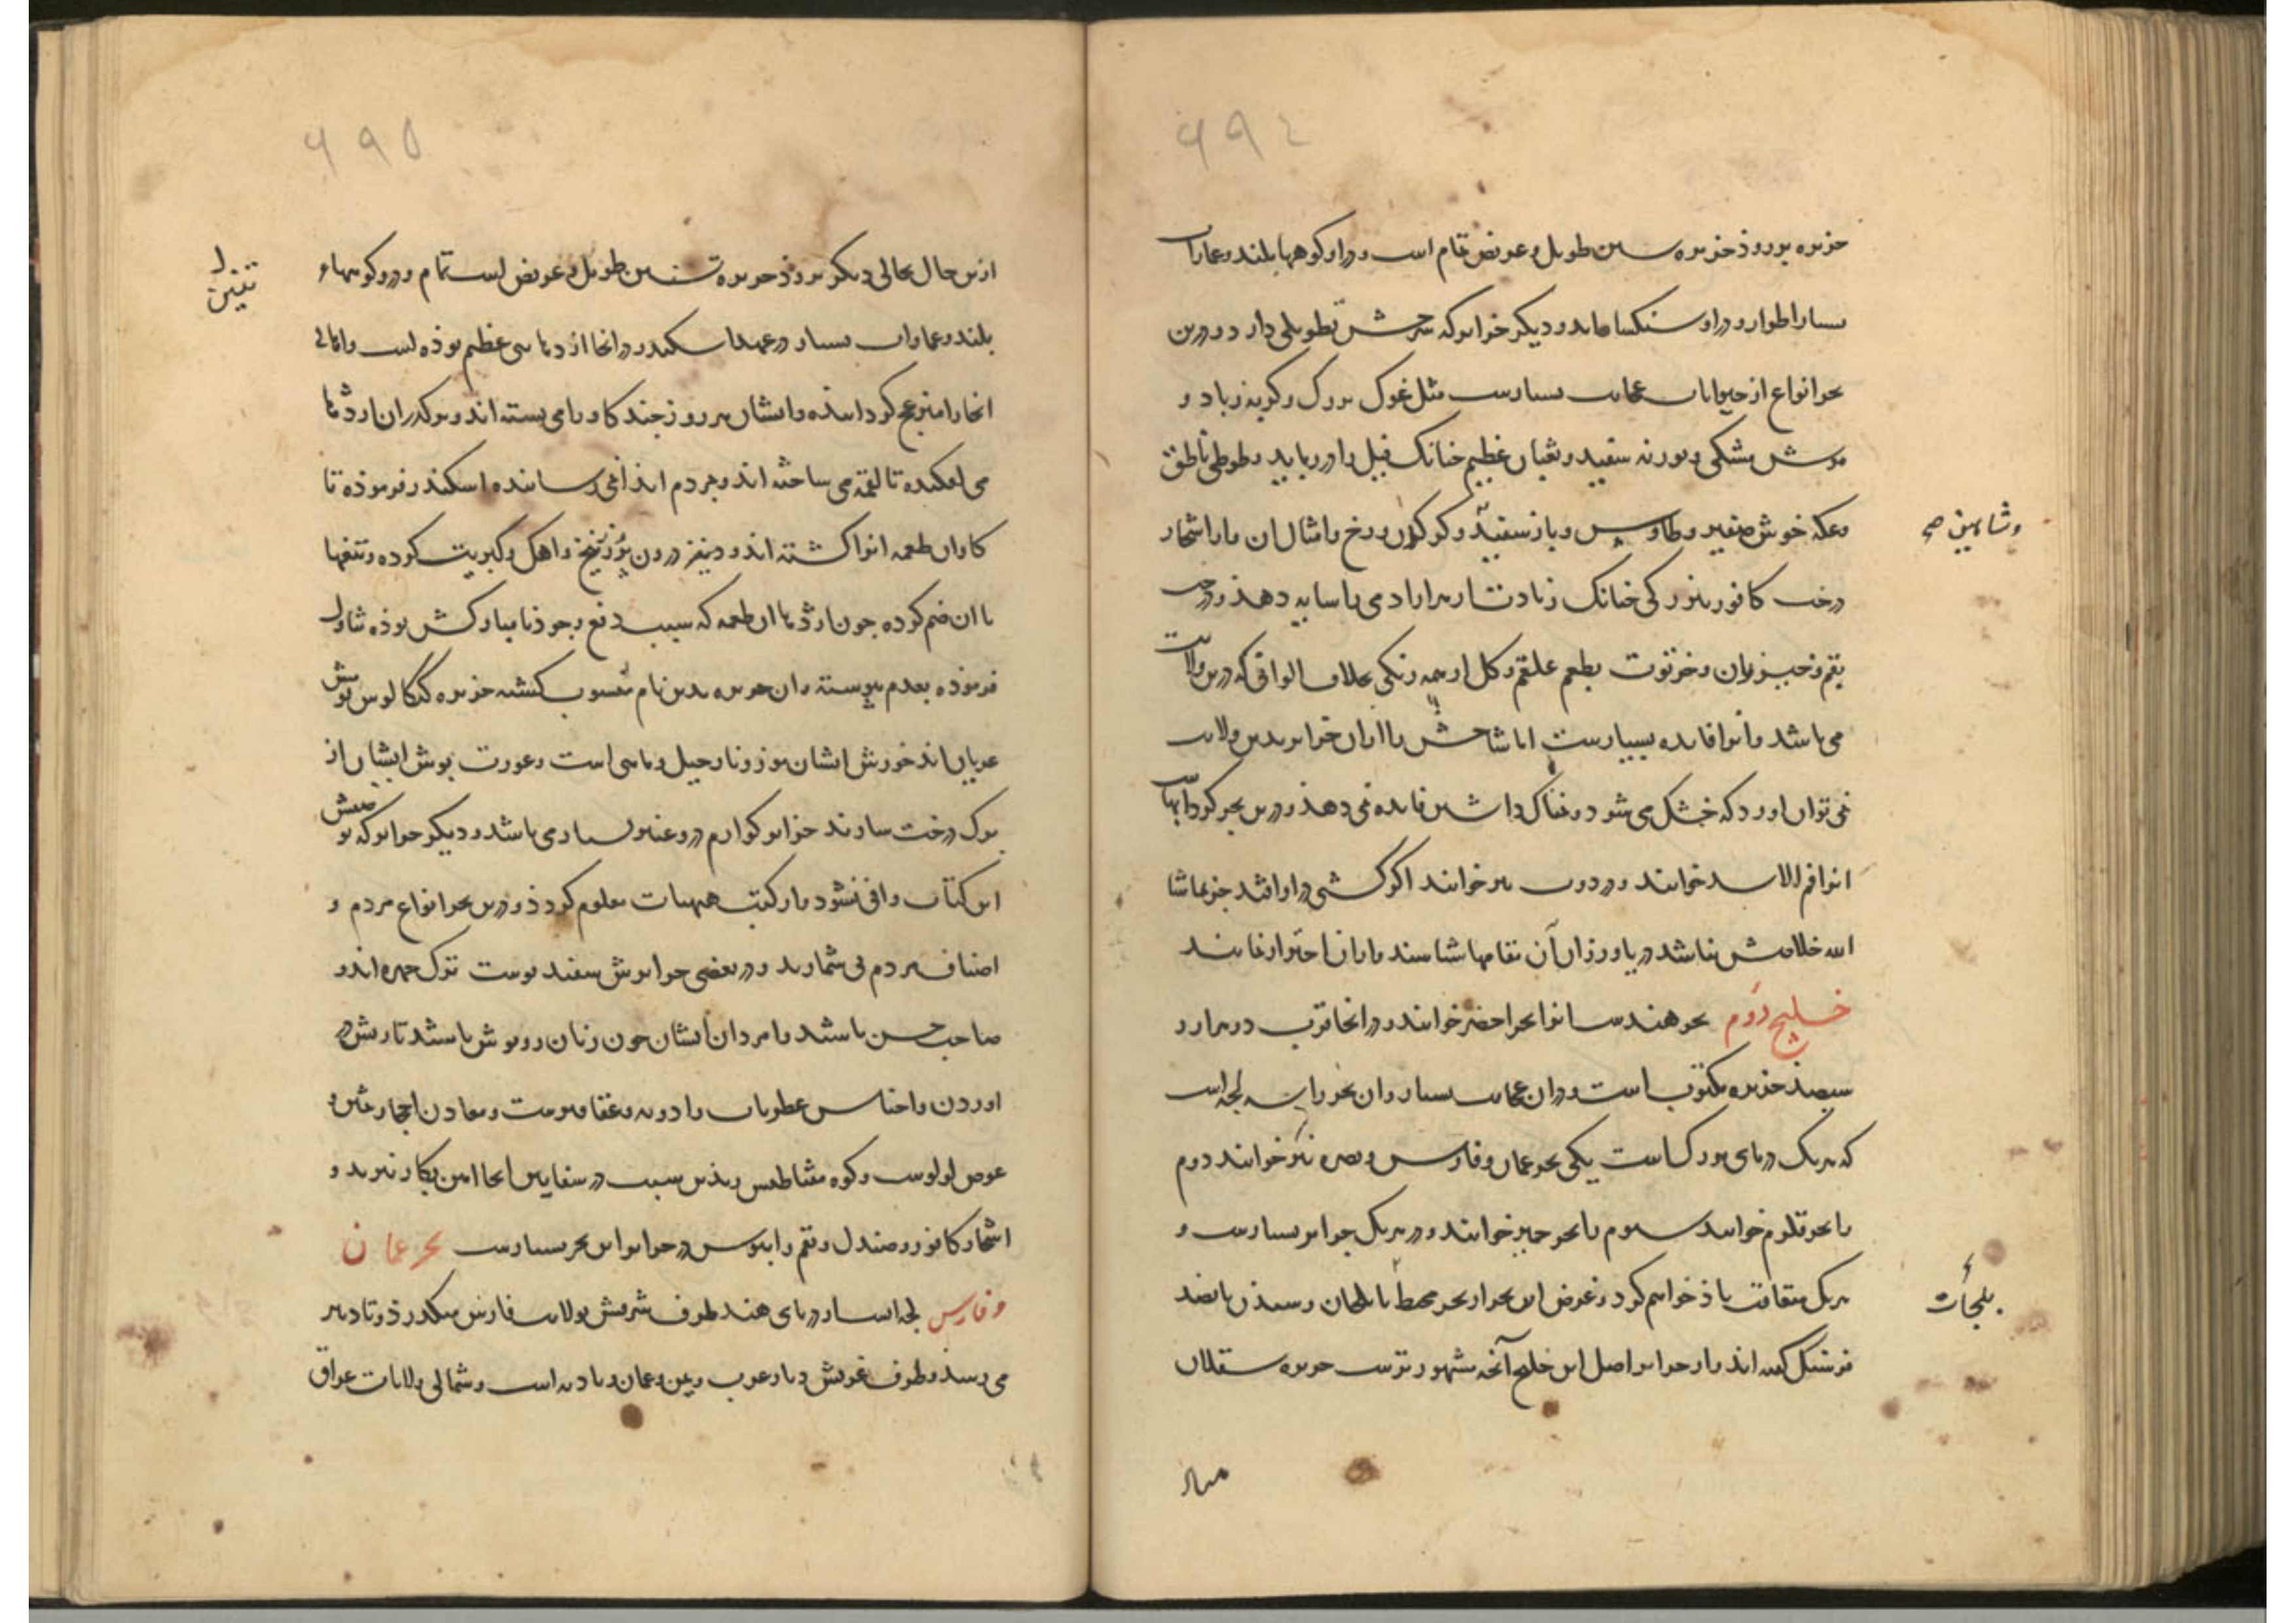 ٦٩٤
جزیره بورود جزیره طویل و عریض تمام است و دراو کوهها بلند و عمارات
بسیار اطوار و دراو و دیگر جزایر که شرحش تطویلی دارد و درین
بحر انواع از حیوانات عجایب بسیارست مثل غوک بزرگ و گربه زباد و
موش مشکی و بوزنه سفید و ثعبان عظیم چنانک فیل را در رباید و طوطی ناطق
وعکه خوش صفیر و طاوس و باز سفید و کرکدن و رخ و امثال ان و از اشجار
وشاهین صح
درخت کافور بزرگی چنانک زیادت از هزار ادمی را سایه دهد و درخت
بقم و خیزران و خرتوت بطعم علقم و کل از همه رنگی بخلاف الوانی که درین ولایت
می باشد و انرا فایده بسیارست اما شاخش را از ان جزایر بدین ولایت
نمی توان اورد که خشک می شود و نمناک داشتن فایده نمی دهد و درین بحر کردابهاست
انرا فم الاسد خوانند و دردور نیز خوانند اکر کشتی دراو افتد جز بماشا
الله خلاصش نباشد دریاورزان آن مقامها شناسند و از ان احتراز نمایند
خلیج دوم بحر هندست انرا بحر اخضر خوانند و درانجا قرب دو هزار و
سیصد جزیره مکتوب است و دران عجایب بسیار و ان بحر را سه لجه است
که هریک دریای بزرگ است یکی بحر عمان و فارس و بصره نیز خوانند دوم
را بحر قلزم خوانند سیوم را بحر حمیر خوانند و در هریک جزایر بسیارست و
هریک متعاقب یاذ خواهم کرد و عرض این بحر از بحر محیط تا بلجان و سند پانصد
بلجات
فرسنگ گفته اند و از جزایر اصل این خلیج آنچه مشهورترست جزیره سقلان
٦٩٥
ازین حال بحالی دیگر برود جزیره تنین طویل و عریض است تمام و درو کوههاء
تنین
بلند و عمارات بسیار در عهد اسکندر درانجا اژدهایی عظیم بوده است و اهالی
انجا را منزعج کردانیده و ایشان هر روز چند کاو را می بسته اند و بر گذر ان اژدها
می افکنده تا لقمه می ساخته اند و مردم ایذا نمی رسانیده اسکندر فرموذه تا
کاوان طعمه انرا کشته اند و درون پر زرنیخ و اهک و کبریت کرده و تیغها
با ان ضم کرده چون اژدها ان طعمه که سبب دفع وجود نامبارکش بوذه تناول
فرموذه بعدم پیوسته و ان جزیره بدین نام منسوب کشته جزیره لنکالوس مردمش
عریان اند خورش ایشان موز و نارجیل و ماهی است و عورت پوش ایشان از
برک درخت سازند جزایر درو عنبر بسیار می باشد و دیگر جزایر که بوصفش
این کتاب وافی نشود و از کتب هیهات معلوم کردد و درین بحر انواع مردم و
اصناف مردم بی شمارند و در بعضی جزایرش سفید پوست ترک چهره اند و
صاحب حسن باشند و مردان ایشان چون زنان روپوش باشند
اوردن و اجناس عطریات و ادویه و عقاقیرست و معادن احجار مثمن و
غوص لولوست و کوه مغناطیس و بذین سبب در سفاین انجا اهن بکار نبرند و
اشجار کافور و صندل و بقم و ابنوس در جزایر این بحر بسیارست بحر عمان
و فارس لجه است از دریای هند طرف شرقیش بولایت فارس میگذرد و تا دیر
می رسد و طرف غربیش دیار عرب و یمن و عمان و بادیه است و شمالی ولایات عراق